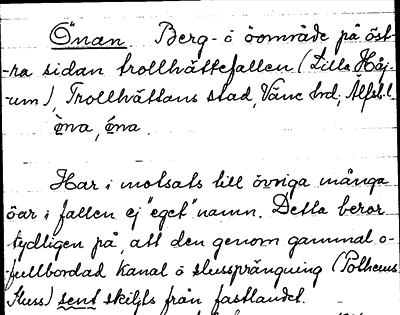 Önan. Berg- o öområde på öst-
-ra sidan trollhättefallen (Lilla Höj-
-um), Trollhättans stad, Väne hrd, Älfsb.l.
ö̀na, ö́na.
Har i motsats till övriga många
öar i fallen ej "eget" namn. Detta beror
tydligen på, att den genom gammal o-
fullbordad kanal o slussprängning (Polhems
sluss) sent skiljts från fastlandet.